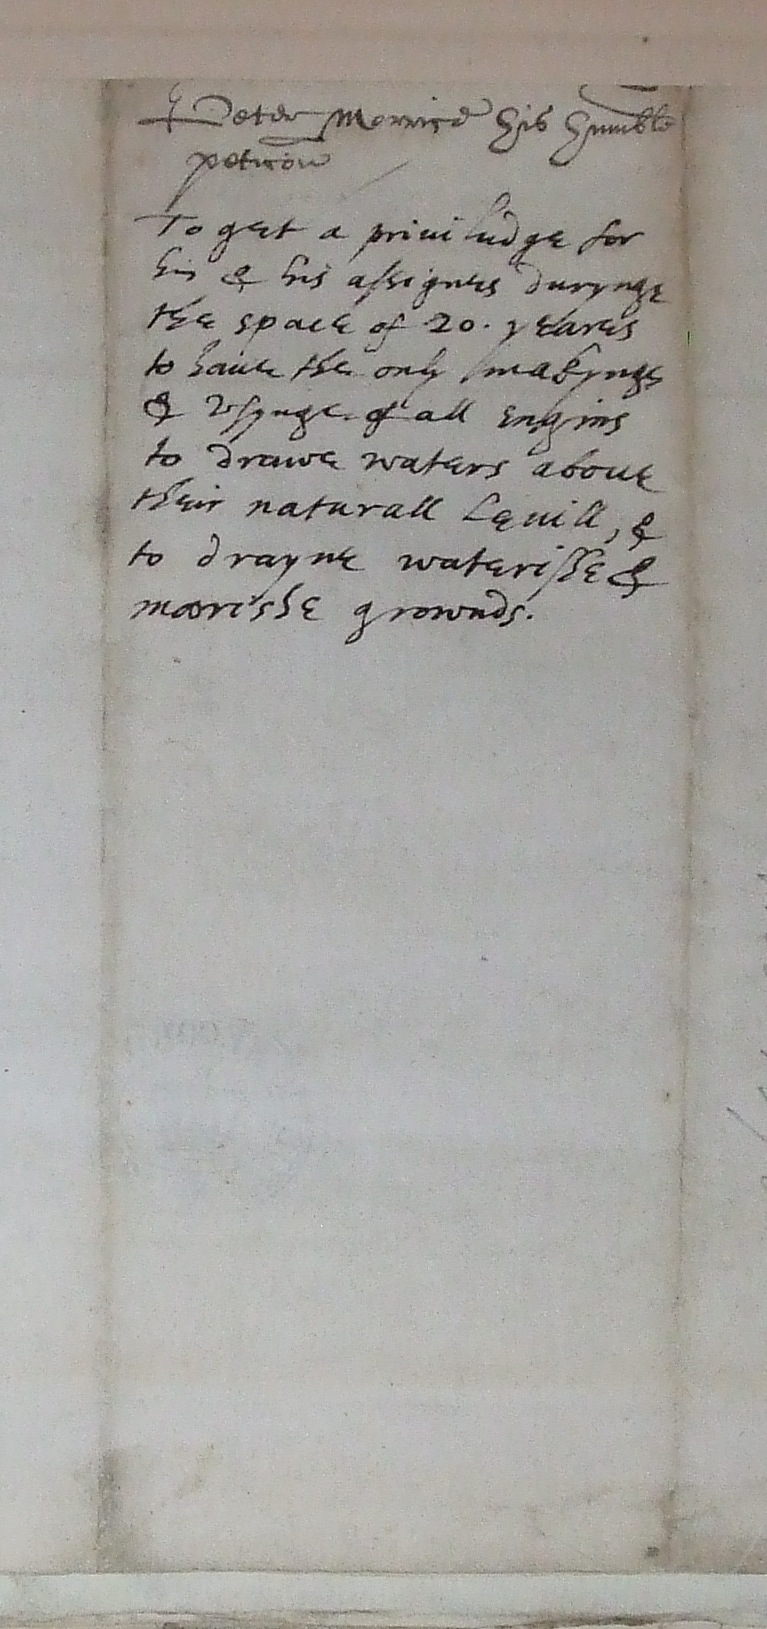 Peter Morrice his humble
peticon
To get a priuiludge for
him & his assignes durynge
the space of 20. yeares
to haue the only makynge
& vsynge of all Engins
to drawe waters aboue
their naturall Leuill, &
to drayne waterisshe &
moorisshe grownds.